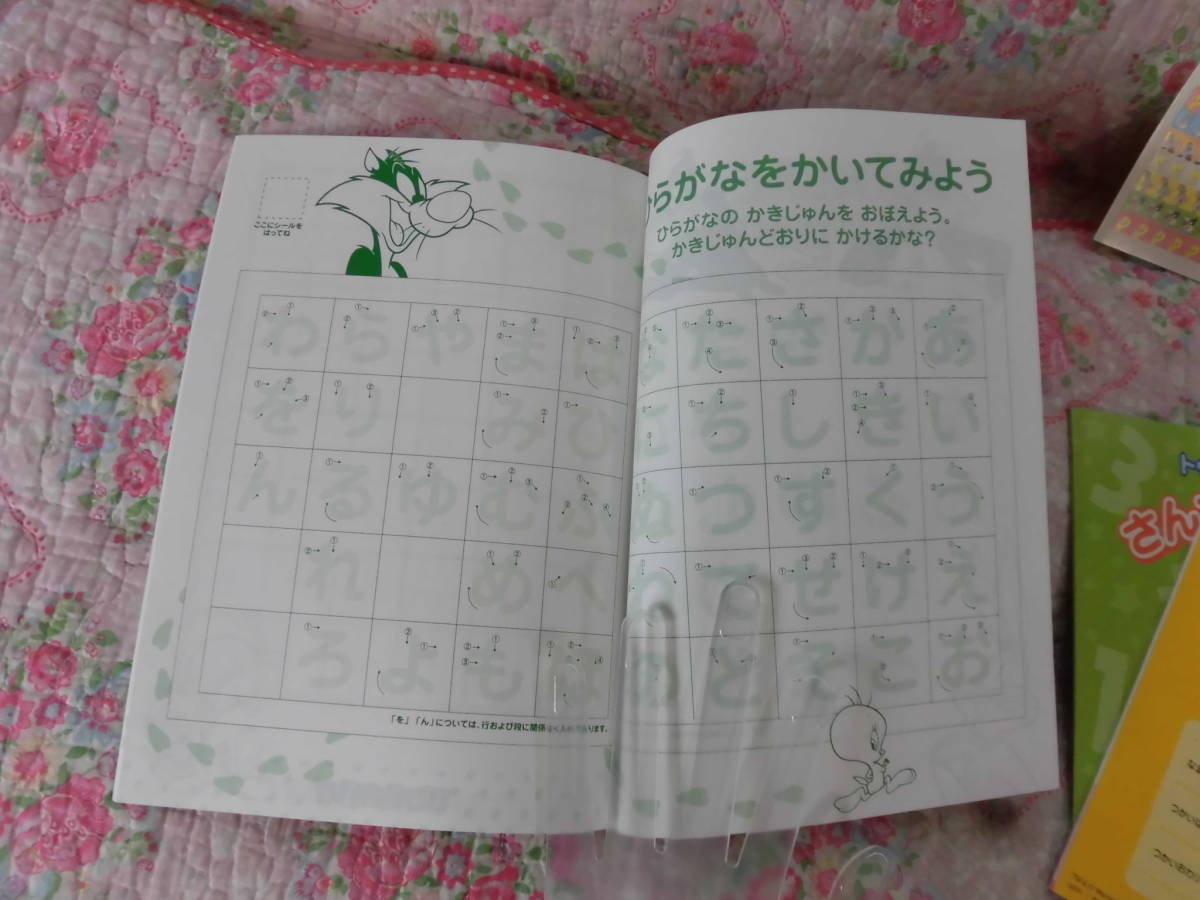 ひらがなをかいてみよう
ひらがなの かきじゅんを おぼえよう。
かきじゅんどおりに かけるかな?
ここにシールを
はってね
わ ら や ま は な た さ か あ
を り み ひ に ち し き い
ん る ゆ む ふ ぬ つ す く う
れ め へ ね て せ け え
ろ よ も ほ の と そ こ お
「を」「ん」については、行および段に関係なく入れてあります。
3
さん
1